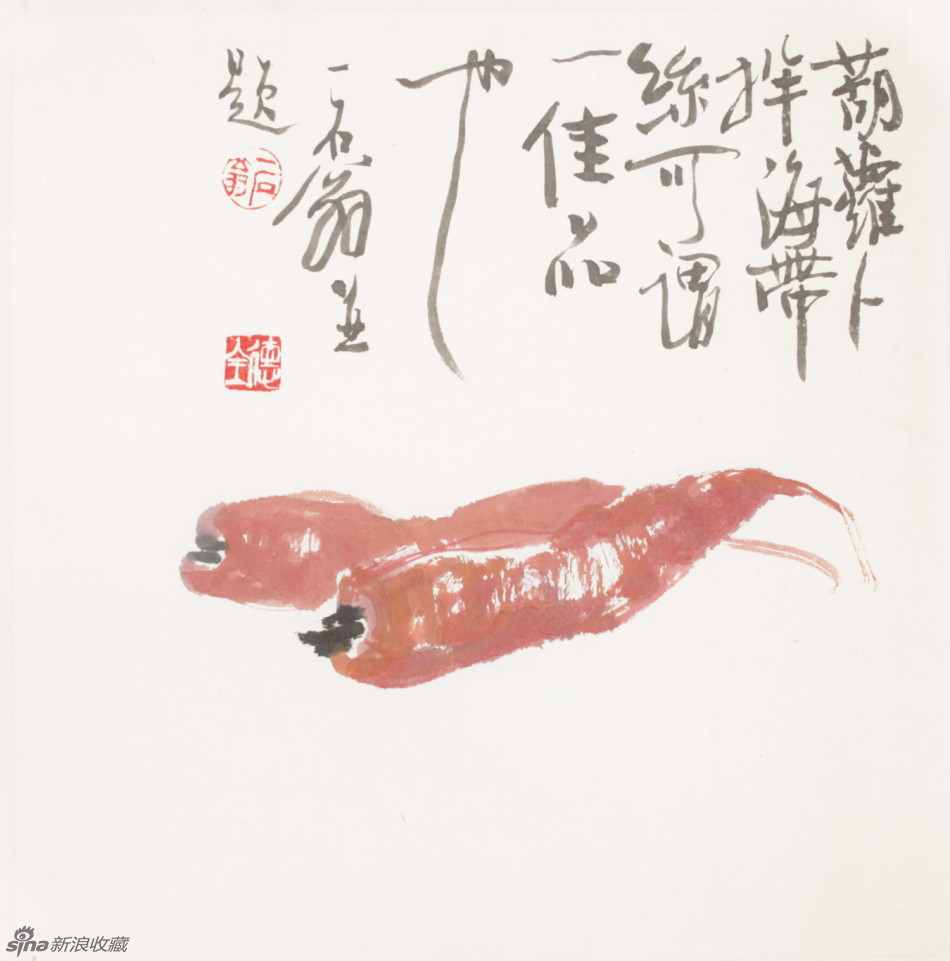 葫蘿卜
拌海帶
絲可謂
一佳品
也
一石翁並
題
一石翁
德全
sina新浪收藏